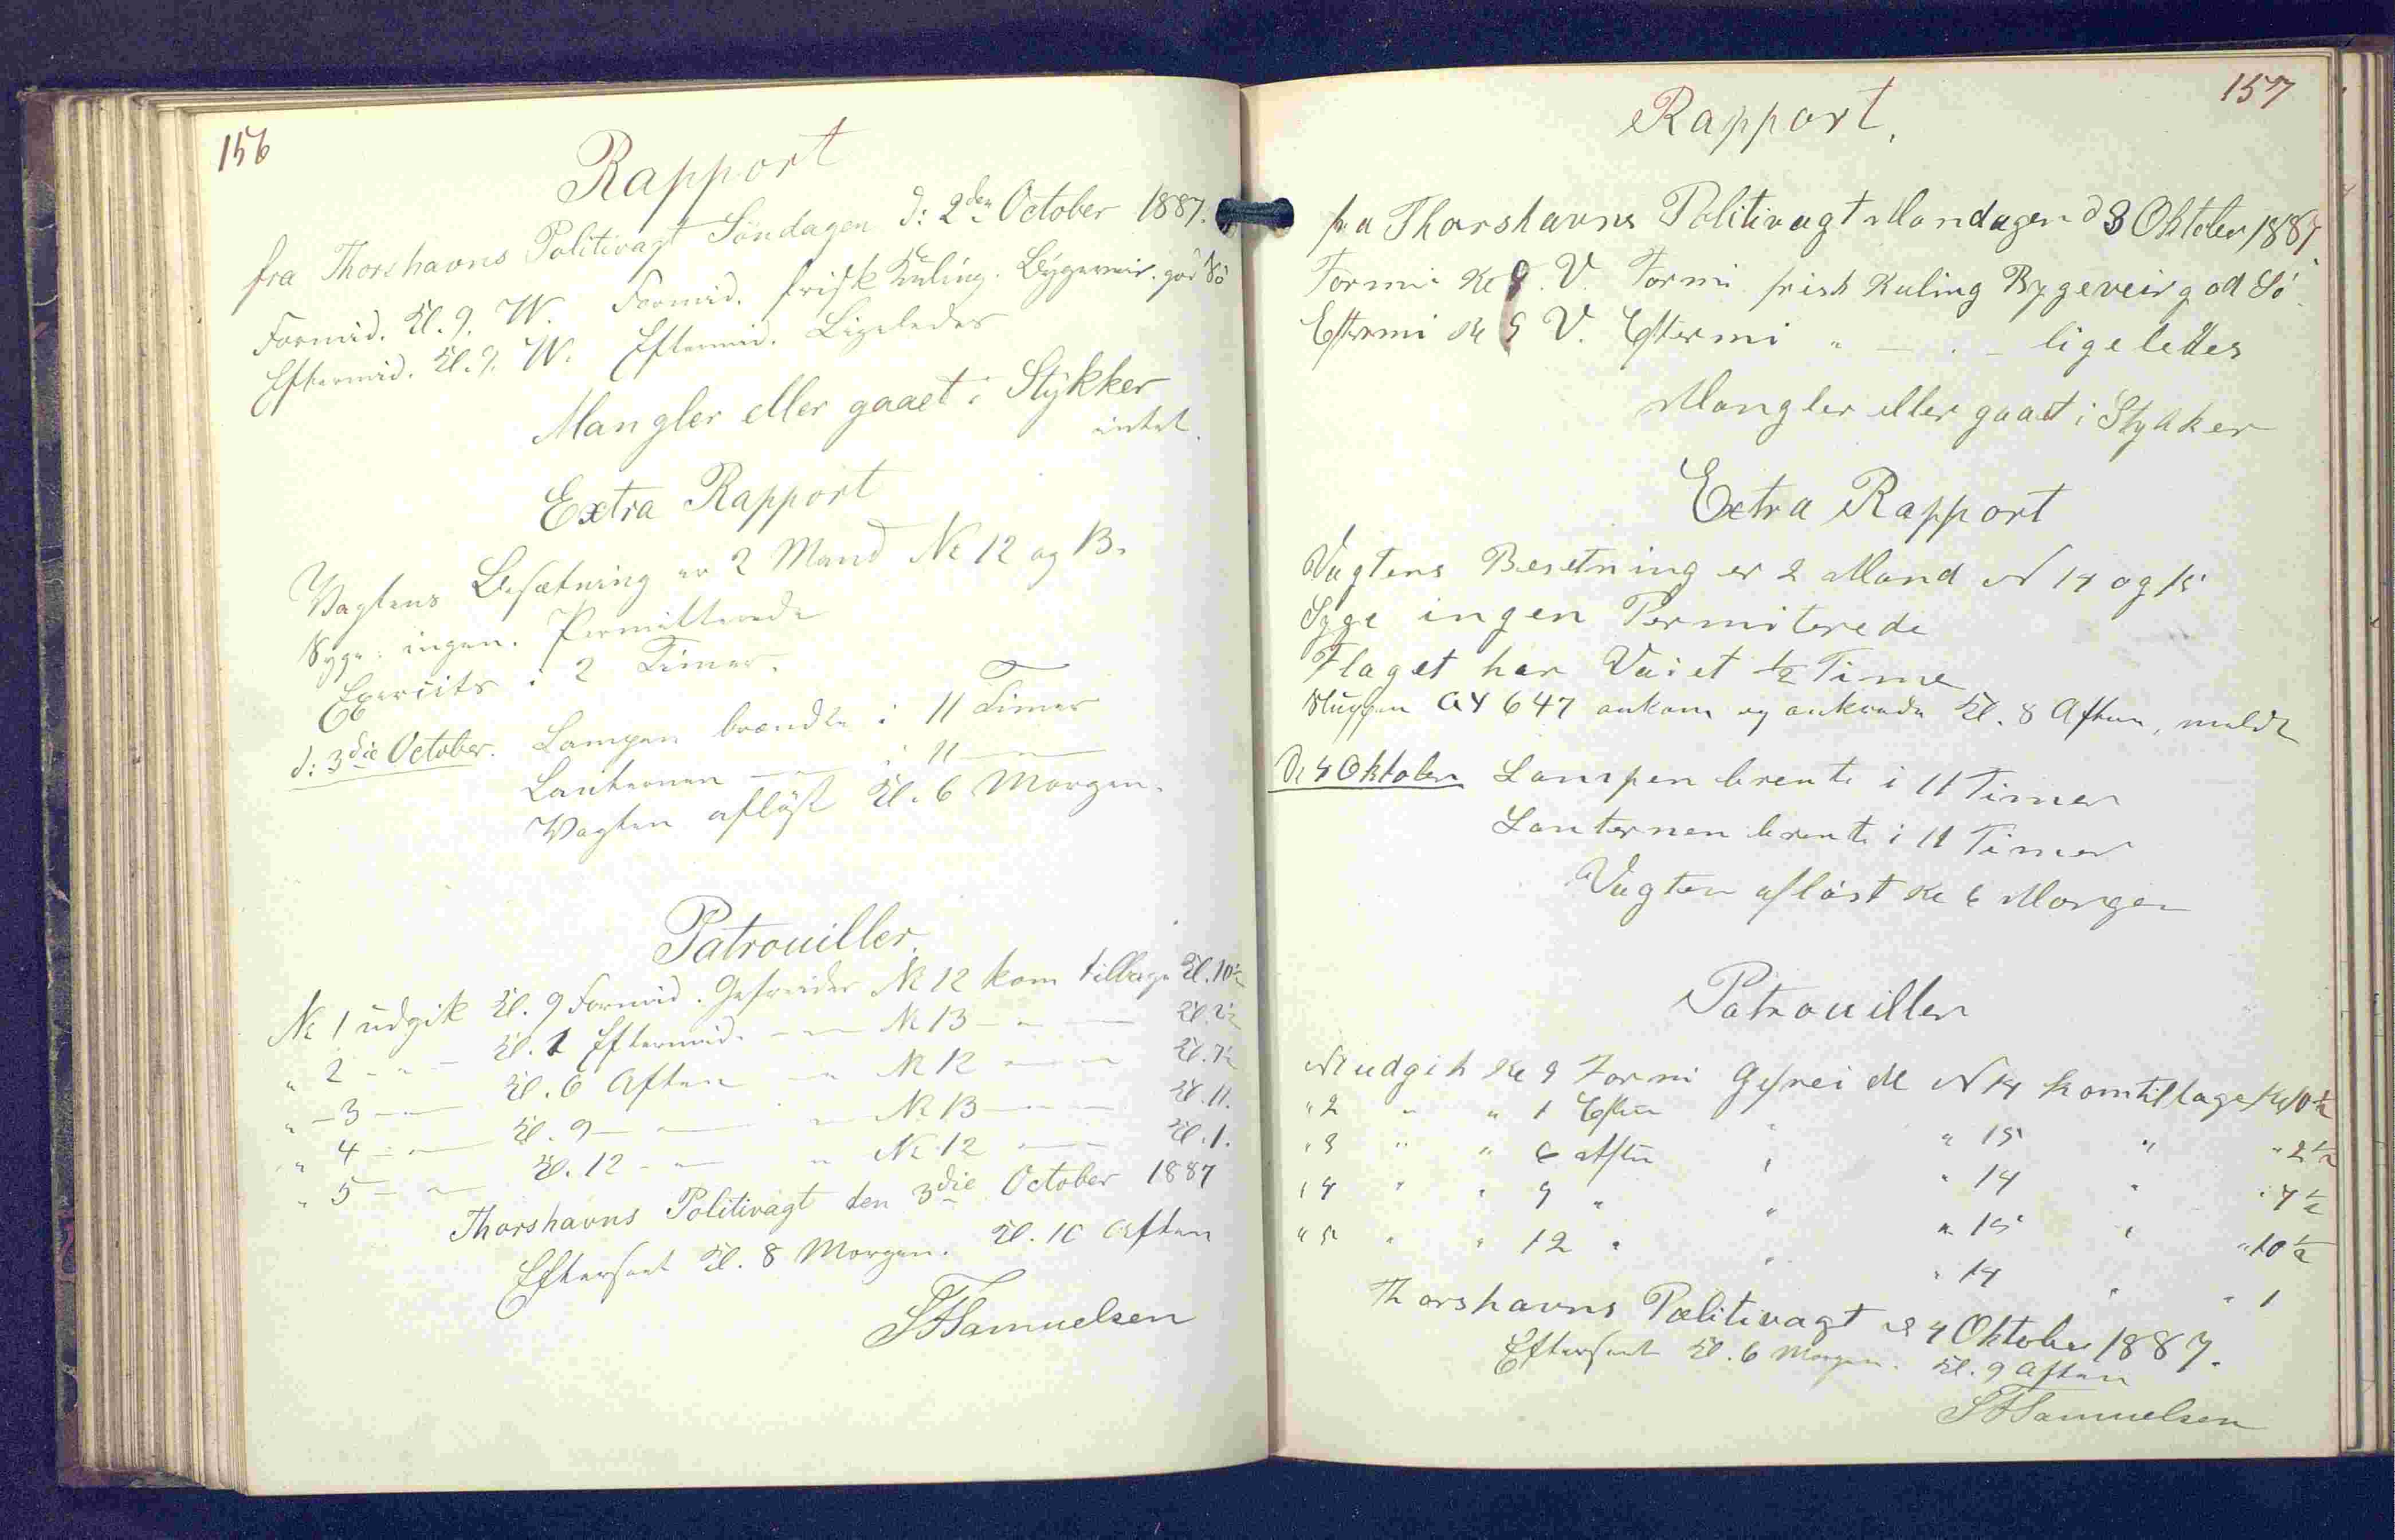 156
Rapport
fra Thorshavns Politivagt Söndagen d: 2den October 1887.
Formid. Kl. 9. W. Formid. frisk Kuling. Bygeveir. god Sö
Eftermid. Kl. 9. W. Eftermid. Ligeledes
Mangler eller gaaet i Stykker
intet.
Extra Rapport
Vagtens Besætning er 2 Mand № 12 og 13.
Syge: ingen. Permitterede
Exercits i 2 Timer.
d: 3die October. Lampen brændte i 11 Timer
Lanternen — " — i 11 — " —
Vagten aflöst Kl. 6 Morgen.
Patrouiller.
№ 1 udgik Kl. 9 Formid. Gefreider № 12 kom tilbage Kl. 10½
" 2 - " - Kl. 1 Eftermid. — " — № 13 — " — Kl. 2½
" - 3 — " — Kl. 6 Aften — " № 12 — " — Kl. 7½
" 4 — " — Kl. 9 — " — " № 13 — " — Kl. 11.
" 5 — " — Kl. 12 — " — " № 12 — " — Kl. 1.
Thorshavns Politivagt den 3die October 1887
Efterseet Kl. 8 Morgen. Kl. 10 Aften
Samuelsen
157
Rapport.
fra Thorshavns Politivagt Mandagen d 3 Oktober 1887
Formi Kl 9. V. Formi frisk Kuling Bygeveir god Sö
Eftermi Kl 9 V. Eftermi " — . — ligeledes
Mangler eller gaaet i Stykker
Extra Rapport
Vagtens Besetning er 2 Mand N 14 og 15
Syge ingen Permiterede
Flaget har Vaiet ½ Time
Sluppen GY 647 ankom og ankrede Kl. 8 Aften, meldt
De 4 Oktober Lampen brente i 11 Timer
Lanternen brente i 11 Timer
Vagten aflöst Kl 6 Morgen
Patrouiller
N 1 udgik Kl 9 Formi Gefrei de N 14 kom tilbage Kl 10½
" 2 " " 1 Efter " " 15 " " 2½
" 3 " " 6 Aften " " 14 " " 7½
" 4 " " 9 " " " 15 " " 10½
" 5 " " 12 " " " 14 " " 1
Thorshavns Politivagt d 4 Oktober 1887.
Efterseet Kl. 6 Morgen. Kl. 9 Aften
Samuelsen